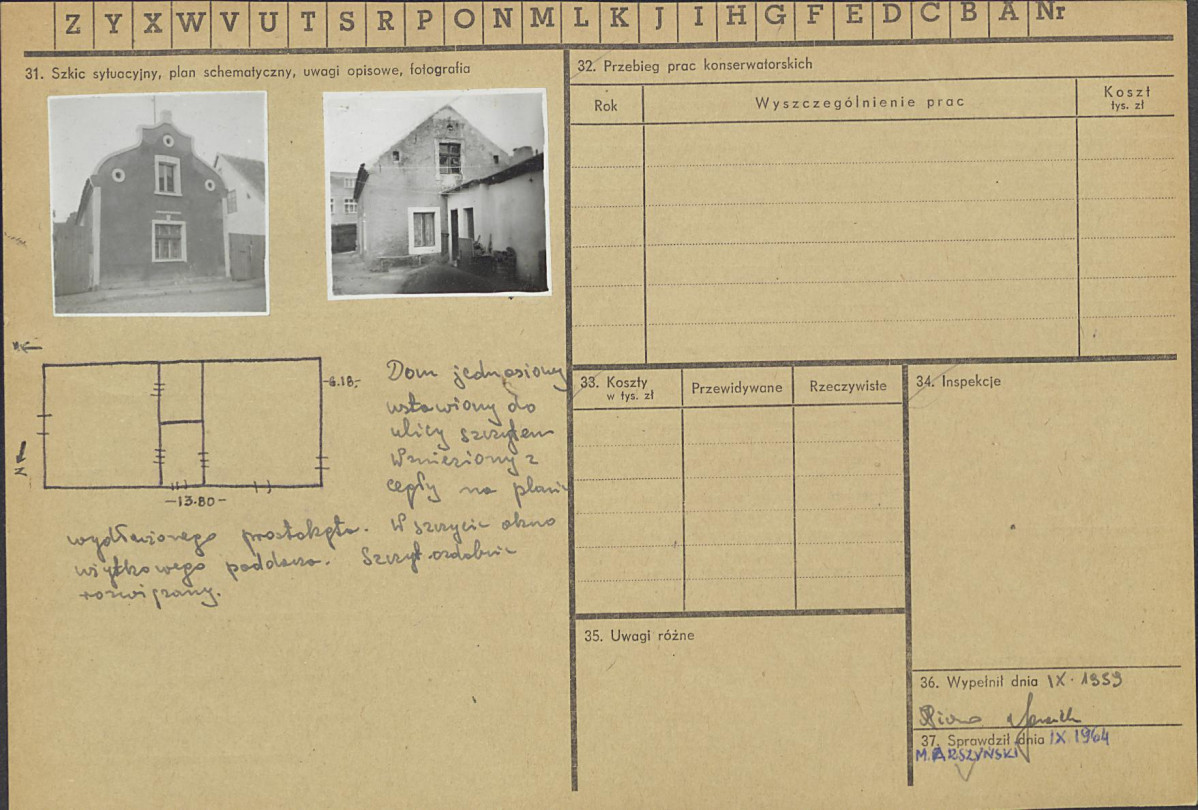 Z Y X W V U T S R P O N M L K J I H G F E D C B A Nr
31. Szkic sytuacyjny, plan schematyczny, uwagi opisowe, fotografia
-6.18,-
N
-13.80-
Dom jednoosiowy
ustawiony do
ulicy szczytem
Wzniesiony z
cegły na planie
wydłużonego prostokąta. W szczycie okno
użytkowego poddasza. Szczyt ozdobnie
rozwiązany.
32. Przebieg prac konserwatorskich
Rok
Wyszczególnienie prac
Koszt
tys. zł
33. Koszty
w tys. zł
Przewidywane
Rzeczywiste
34. Inspekcje
35. Uwagi różne
36. Wypełnił dnia IX. 1959
37. Sprawdził dnia IX 1964
M. ARSZYŃSKI